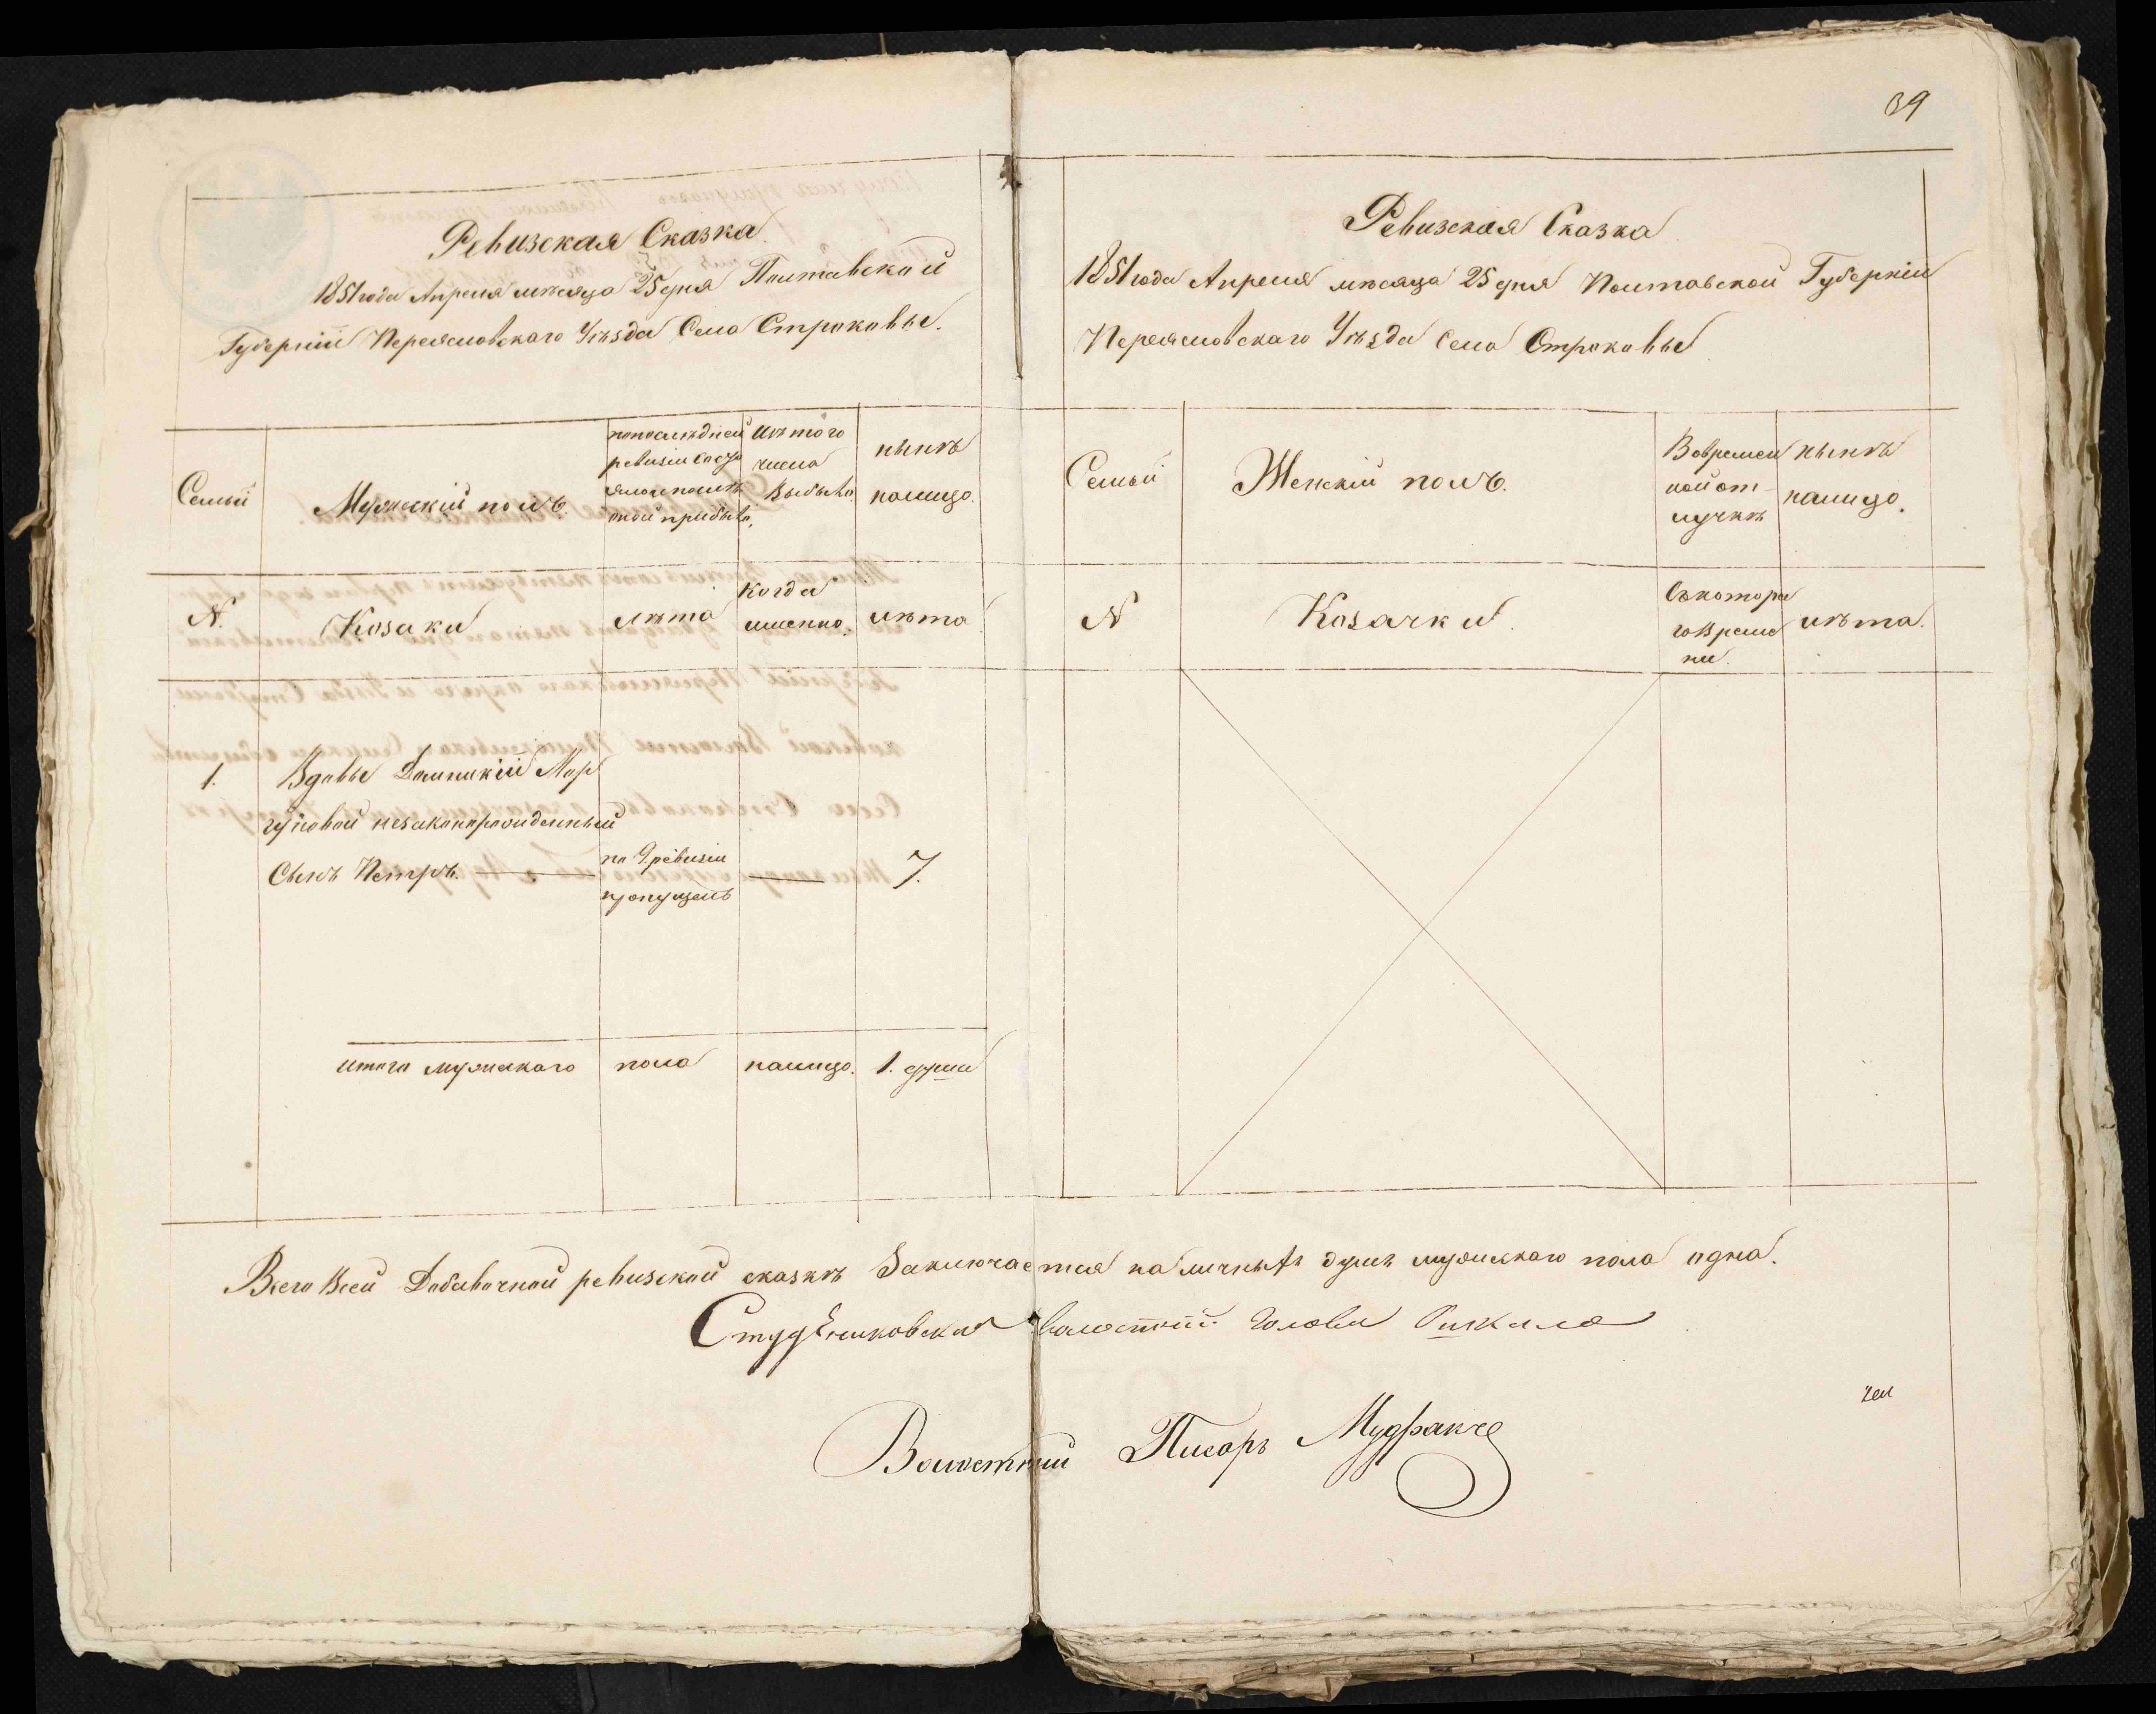 39
Ревизская Сказка
1851 года Апреля месяца 25 дня Полтавской
Губернии Переясловскаго Уѣзда Села Строковые.
Семьи
Мужескій полъ.
по последней
ревизіи состо
яло и послѣ
оной прибыло,
Изъ того
числа
Выбыло.
нынѣ
налицо.
N.
Козаки
лѣта
Когда
именно.
лѣта
1.
Вдовы Домникіи Мор
гуновой незаконорожденный
Сынъ Петръ.
по 9. ревизіи
пропущенъ
7.
итого мужескаго пола налицо. 1. душа
Ревизская Сказка
1851 года Апреля месяца 25 дня Полтавской Губерніи
Переясловскаго Уѣзда Села Строковые
Семьи
Женскій полъ.
Вовремен
ной от-
лучкѣ
нынѣ
налицо.
N
Козачки.
Съ котора
го време
ни.
лѣта.
Всего Всей Добавочной ревизской сказкѣ Заключается наличныхъ душъ мужескаго пола одна.
волостный Голова
Волостный Писарь